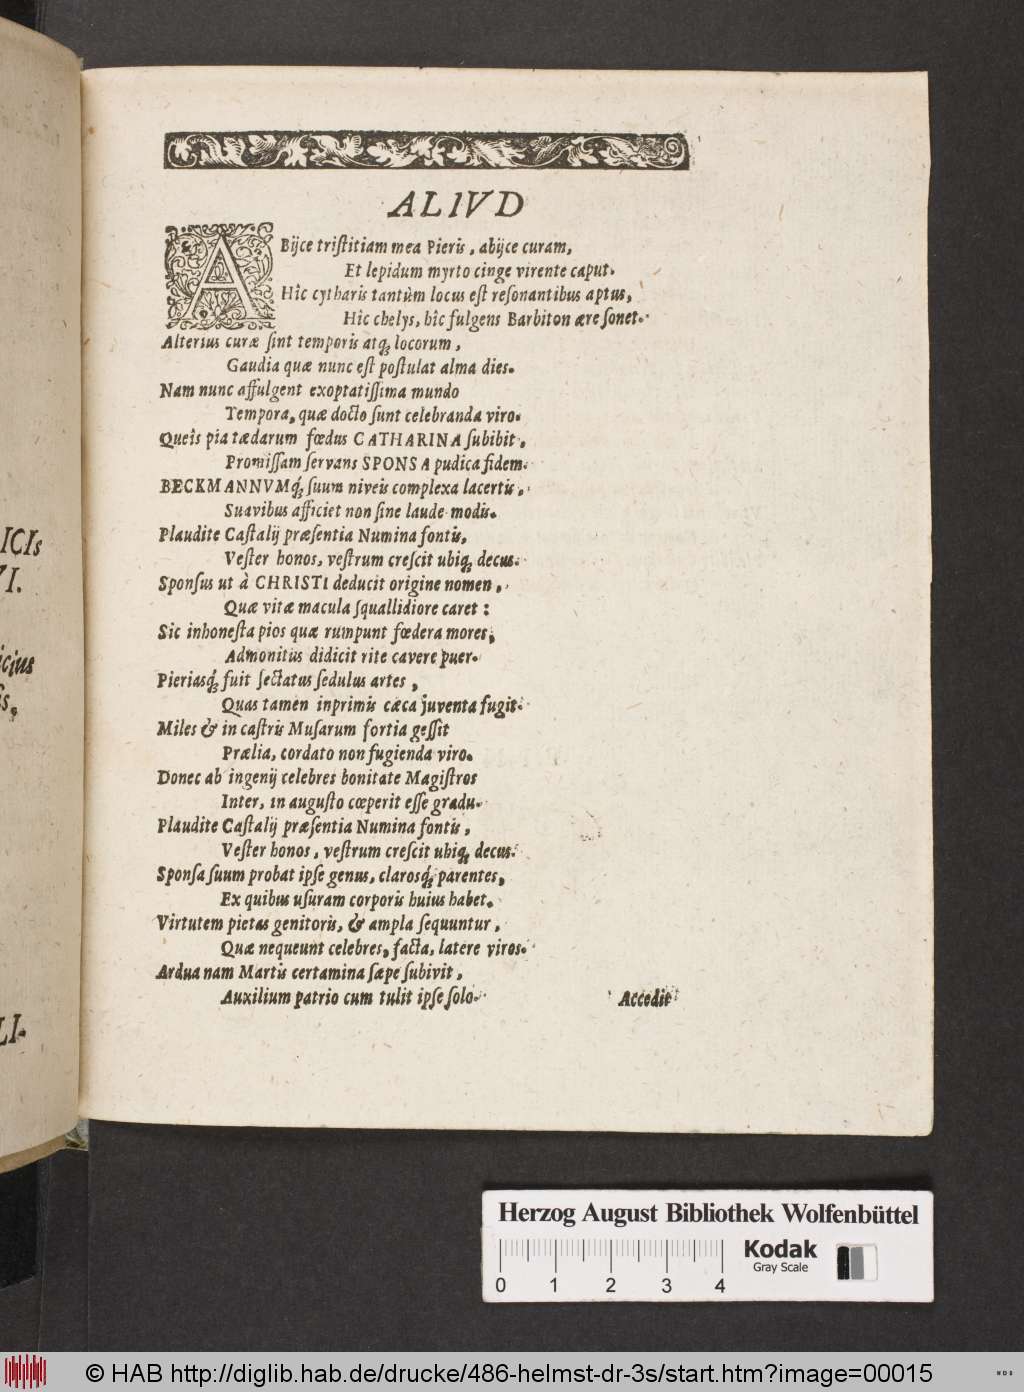 ICIs
VI.
icius
is,
LI-
ALIVD
ABijce tristitiam mea Pieris, abijce curam,
Et lepidum myrto cinge virente caput.
Hîc cytharis tantùm locus est resonantibus aptus,
Hîc chelys, hîc fulgens Barbiton ære sonet.
Alterius curæ sint temporis atq; locorum,
Gaudia quæ nunc est postulat alma dies.
Nam nunc affulgent exoptatissima mundo
Tempora, quæ docto sunt celebranda viro.
Queîs pia tædarum fœdus CATHARINA subibit,
Promissam servans SPONSA pudica fidem.
BECKMANNVMq; suum niveis complexa lacertis,
Suavibus afficiet non sine laude modis.
Plaudite Castalij præsentia Numina fontis,
Vester honos, vestrum crescit ubiq; decus.
Sponsus ut à CHRISTI deducit origine nomen,
Quæ vitæ macula squallidiore caret:
Sic inhonesta pios quæ rumpunt fœdera mores,
Admonitus didicit rite cavere puer.
Pieriasq; fuit sectatus sedulus artes,
Quas tamen inprimis cæca juventa fugit.
Miles & in castris Musarum fortia gessit
Prælia, cordato non fugienda viro.
Donec ab ingenij celebres bonitate Magistros
Inter, in augusto cœperit esse gradu.
Plaudite Castalij præsentia Numina fontis,
Vester honos, vestrum crescit ubiq; decus.
Sponsa suum probat ipse genus, clarosq; parentes,
Ex quibus usuram corporis huius habet.
Virtutem pietas genitoris, & ampla sequuntur,
Quæ nequeunt celebres, facta, latere viros.
Ardua nam Martis certamina sæpe subivit,
Auxilium patrio cum tulit ipse solo.
Accedit
Herzog August Bibliothek Wolfenbüttel
0 1 2 3 4
Kodak
Gray Scale
© HAB http://diglib.hab.de/drucke/486-helmst-dr-3s/start.htm?image=00015